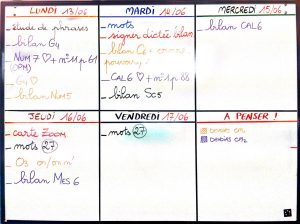 LUNDI 13/06
_ étude de phrases
_ bilan G4
_ NUM 7 ♡ + n°11 p 61
_ G4 ♡
_ bilan Num5
MARDI 14/06
_ mots
_ signer dictée bilan
_ bilan C6
_ CAL6 ♡ + n°11 p 88
_ bilan Sc5
MERCREDI 15/06
_ bilan CAL6
JEUDI 16/06
_ carte Zoom
_ mots 27
_ O3 on/on n'
_ bilan MES 6
VENDREDI 17/06
_ mots 27
A PENSER !
devoirs CM1
devoirs CM2